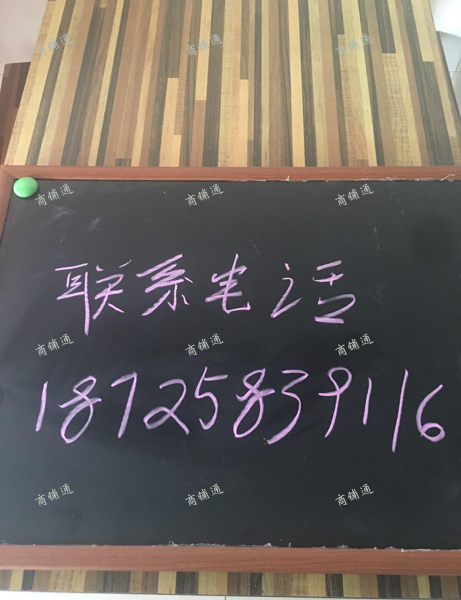 商铺通 商铺通 商铺通
商铺通 商铺通 商铺通
联系电话
商铺通 商铺通 商铺通
18725839116
商铺通 商铺通 商铺通